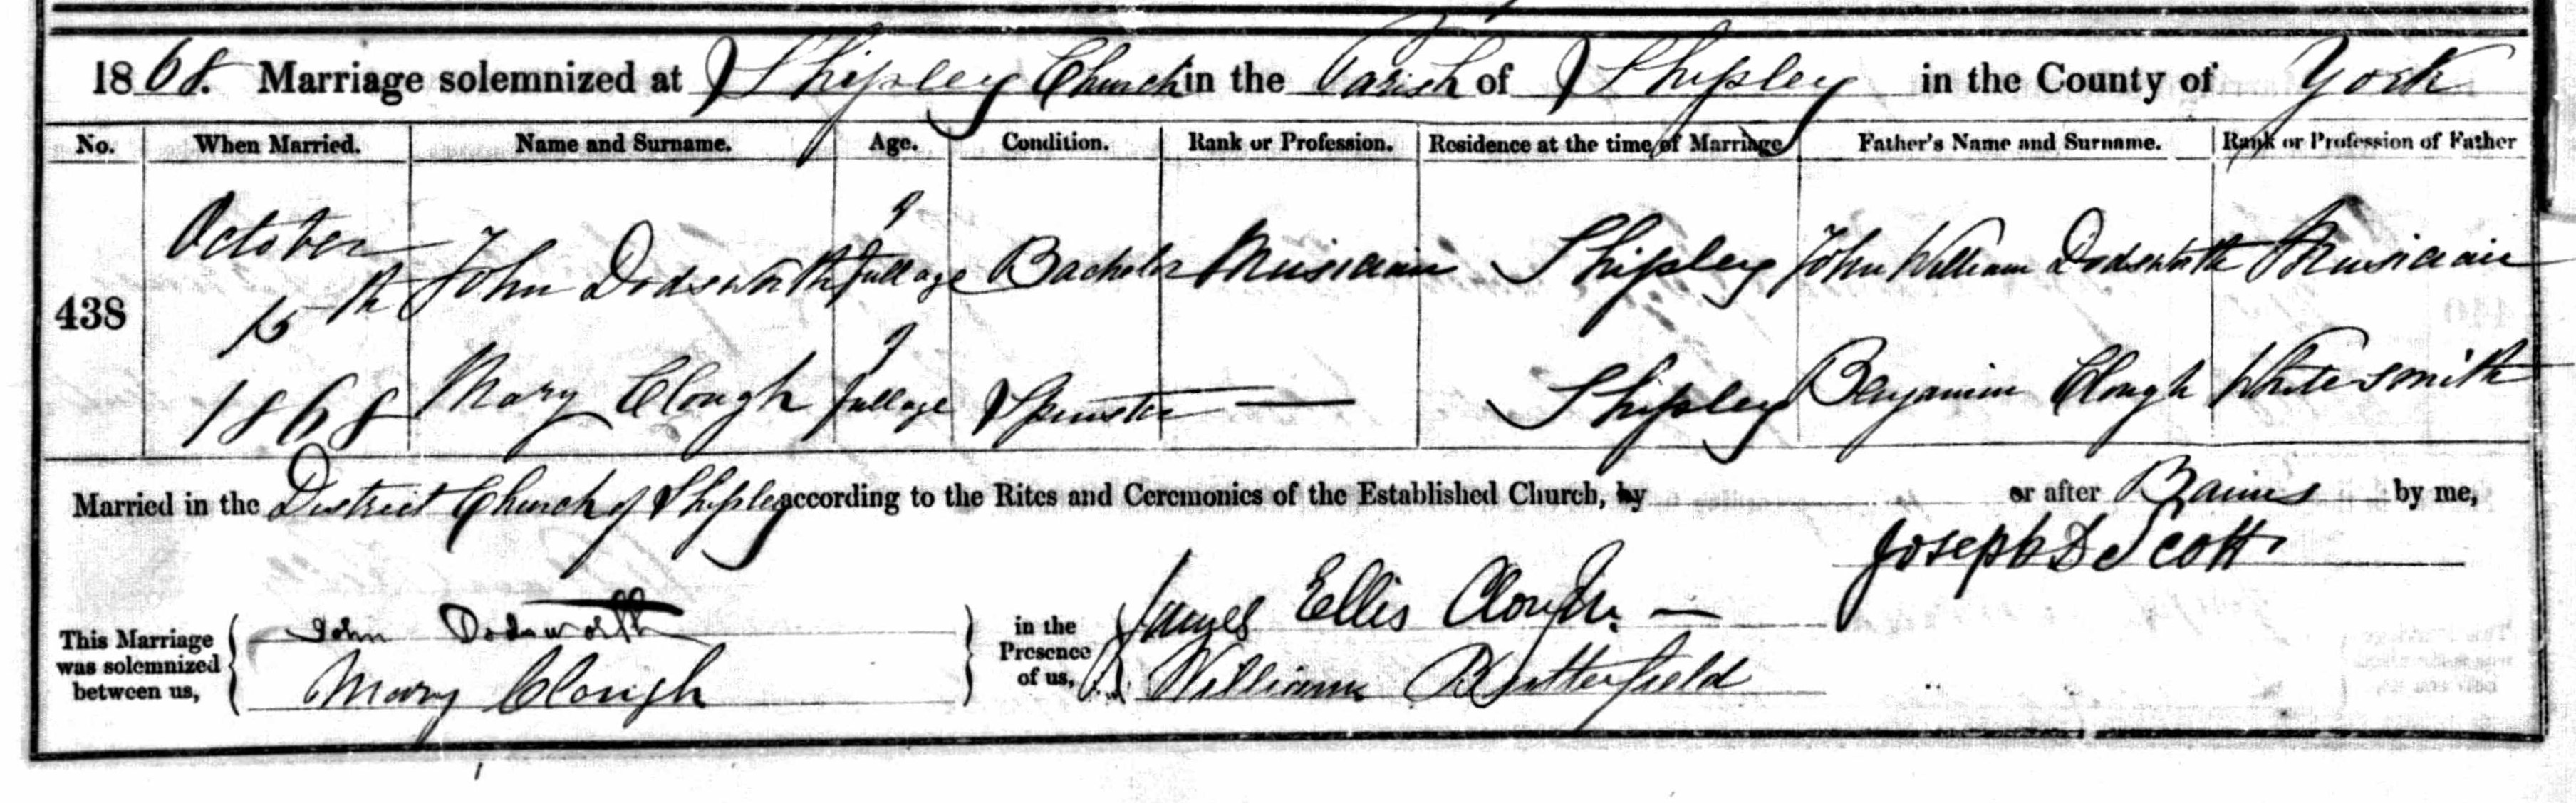 1868. Marriage solemnized at Shipley Church in the Parish of Shipley in the County of York
No. When Married. Name and Surname. Age. Condition. Rank or Profession. Residence at the time of Marriage Father's Name and Surname. Rank or Profession of Father
438 October 15th 1868 John Dodsworth full age Bachelor Musician Shipley John William Dodsworth Musician
Mary Clough full age Spinster — Shipley Benjamin Clough Whitesmith
Married in the District Church of Shipley according to the Rites and Ceremonies of the Established Church, by or after Banns by me,
Joseph D Scott
This Marriage was solemnized between us, John Dodsworth Mary Clough in the Presence of us, James Ellis Clough. — William Butterfield